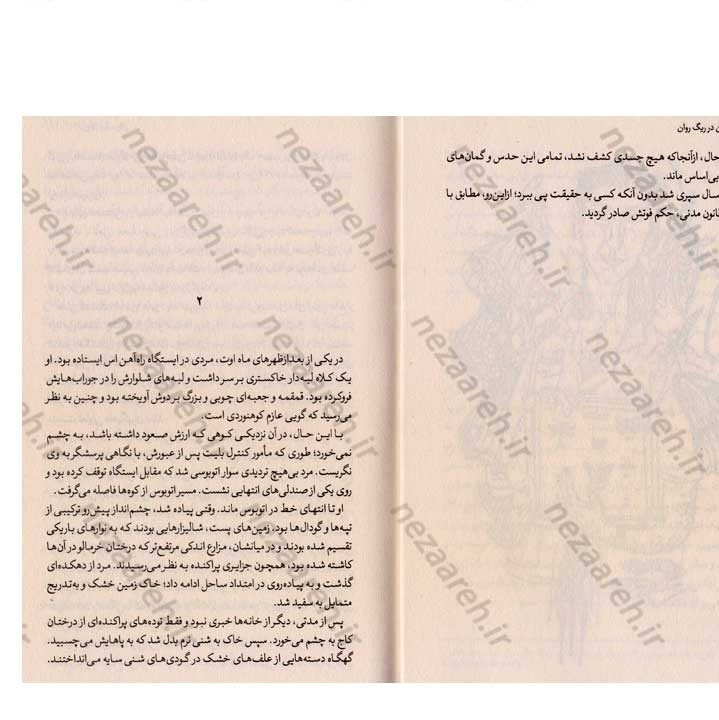 در ریگ روان
حال، ازآنجاکه هیچ جسدی کشف نشد، تمامی این حدس و گمان‌های
بی‌اساس ماند.
سال سپری شد بدون آنکه کسی به حقیقت پی ببرد؛ ازاین‌رو، مطابق با
قانون مدنی، حکم فوتش صادر گردید.
۲
در یکی از بعدازظهرهای ماه اوت، مردی در ایستگاه راه‌آهن اس ایستاده بود. او
یک کلاه لبه‌دار خاکستری بر سر داشت و لبه‌های شلوارش را در جوراب‌هایش
فروکرده بود. قمقمه و جعبه‌ای چوبی و بزرگ بر دوش آویخته بود و چنین به نظر
می‌رسید که گویی عازم کوهنوردی است.
با این حال، در آن نزدیکی کوهی که ارزش صعود داشته باشد، به چشم
نمی‌خورد؛ طوری که مأمور کنترل بلیت پس از عبورش، با نگاهی پرسشگر به وی
نگریست. مرد بی‌هیچ تردیدی سوار اتوبوسی شد که مقابل ایستگاه توقف کرده بود و
روی یکی از صندلی‌های انتهایی نشست. مسیر اتوبوس از کوه‌ها فاصله می‌گرفت.
او تا انتهای خط در اتوبوس ماند. وقتی پیاده شد، چشم‌انداز پیش‌رو ترکیبی از
تپه‌ها و گودال‌ها بود. زمین‌های پست، شالیزارهایی بودند که به نوارهای باریکی
تقسیم شده بودند و در میانشان، مزارع اندکی مرتفع‌تر که درختان خرمالو در آن‌ها
کاشته شده بود، همچون جزایری پراکنده به نظر می‌رسیدند. مرد از دهکده‌ای
گذشت و به پیاده‌روی در امتداد ساحل ادامه داد؛ خاک زمین خشک و به‌تدریج
متمایل به سفید شد.
پس از مدتی، دیگر از خانه‌ها خبری نبود و فقط توده‌های پراکنده‌ای از درختان
کاج به چشم می‌خورد. سپس خاک به شنی نرم بدل شد که به پاهایش می‌چسبید.
گهگاه دسته‌هایی از علف‌های خشک در گودی‌های شنی سایه می‌انداختند.
nezaareh.ir